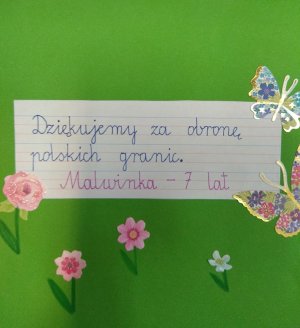 Dziękujemy za obronę
polskich granic.
Malwinka – 7 lat